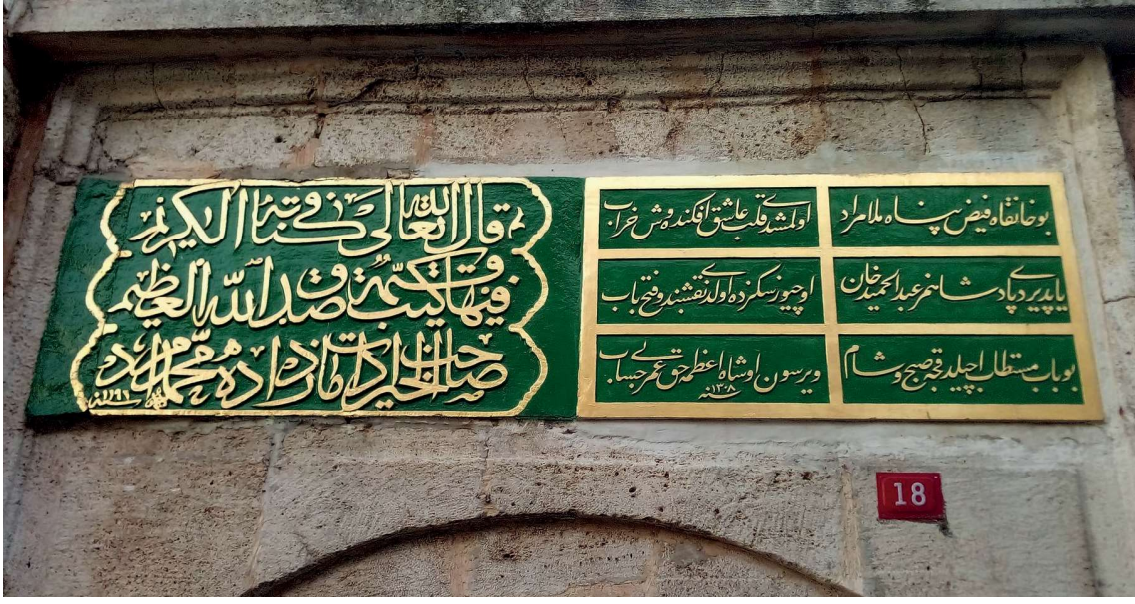 بو خانقاه فیض پناه ملا مراد
اولمشدی قلب عاشق افکنده وش خراب
یاپدیردی پادشاهمز عبدالحمید خان
اوچیوز سکزده اولدی نقشبنده فتح باب
بو باب مستطاب آچیلدقجه صبح و شام
ویرسون او شاه اعظمه حق عمر بی حساب
سنه ١٣٠٨
قال الله تعالى في كتابه الكريم
فيها كتب قيمة صدق الله العظيم
صاحب الخيرات داماد زاده محمد مراد
18